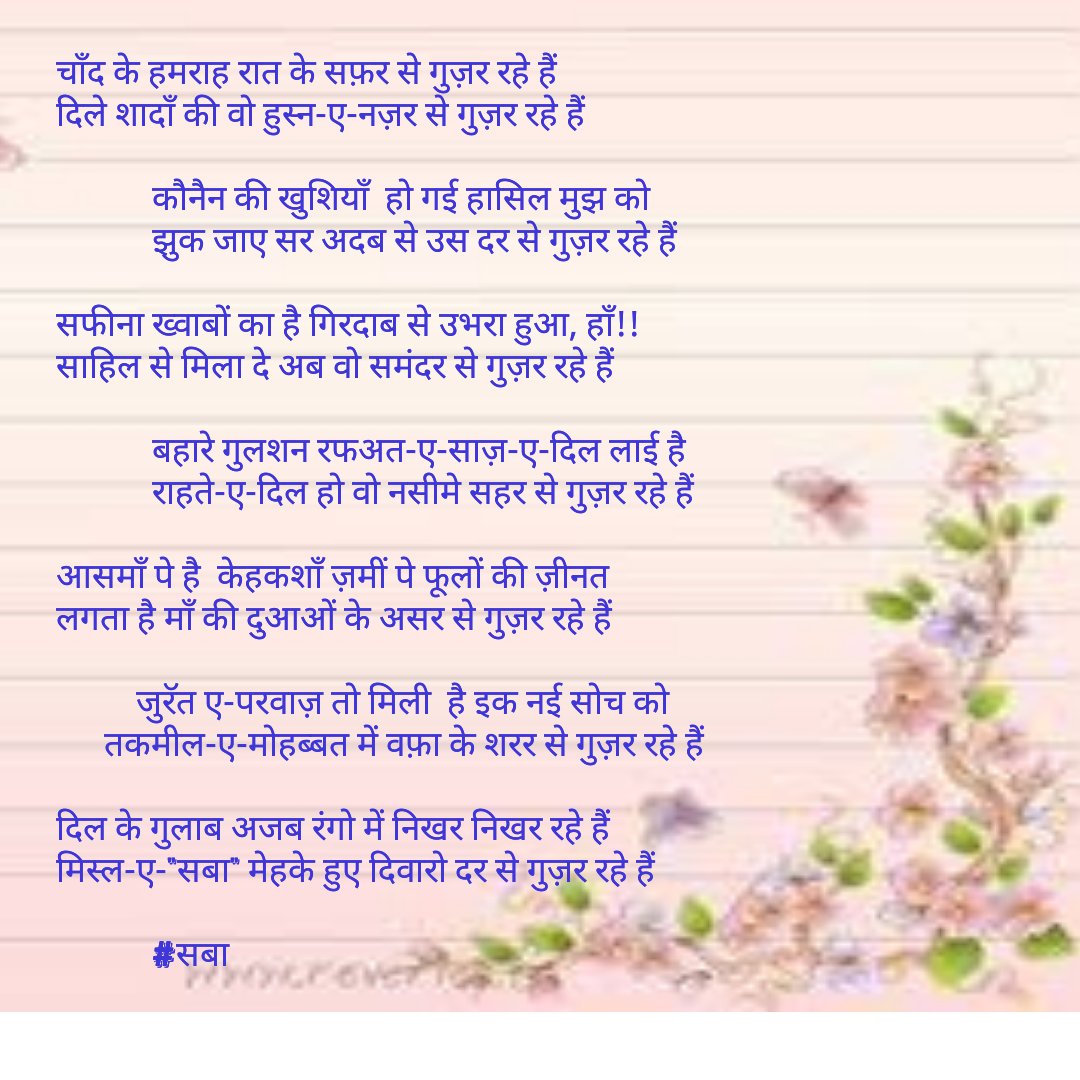 चाँद के हमराह रात के सफ़र से गुज़र रहे हैं
दिले शादाँ की वो हुस्न-ए-नज़र से गुज़र रहे हैं
कौनैन की खुशियाँ हो गई हासिल मुझ को
झुक जाए सर अदब से उस दर से गुज़र रहे हैं
सफीना ख्वाबों का है गिरदाब से उभरा हुआ, हाँ!!
साहिल से मिला दे अब वो समंदर से गुज़र रहे हैं
बहारे गुलशन रफअत-ए-साज़-ए-दिल लाई है
राहते-ए-दिल हो वो नसीमे सहर से गुज़र रहे हैं
आसमाँ पे है केहकशाँ ज़मीं पे फूलों की ज़ीनत
लगता है माँ की दुआओं के असर से गुज़र रहे हैं
जुरॅत ए-परवाज़ तो मिली है इक नई सोच को
तकमील-ए-मोहब्बत में वफ़ा के शरर से गुज़र रहे हैं
दिल के गुलाब अजब रंगो में निखर निखर रहे हैं
मिस्ल-ए-"सबा" मेहके हुए दिवारो दर से गुज़र रहे हैं
#सबा